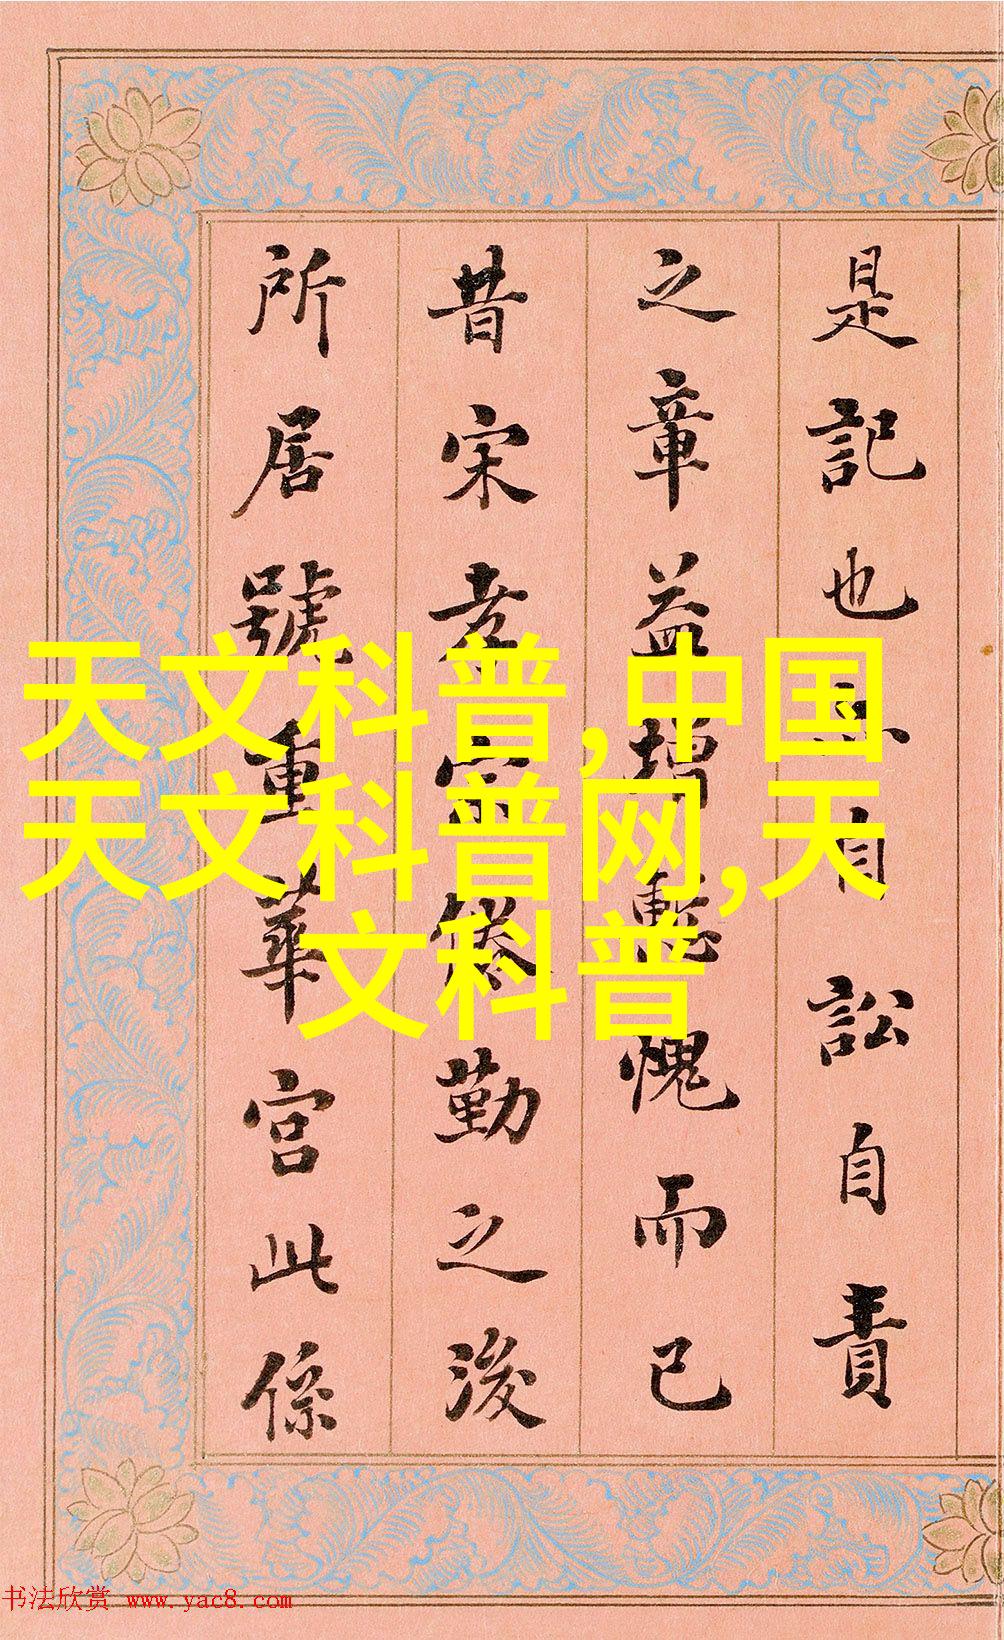 是記也[...]自訟自責
之章益增慙愧而已
昔宋孝宗倦勤之後
所居號重華宮此係
天文科普,中国
天文科普网,天
文科普
书法欣赏 www.yac8.com